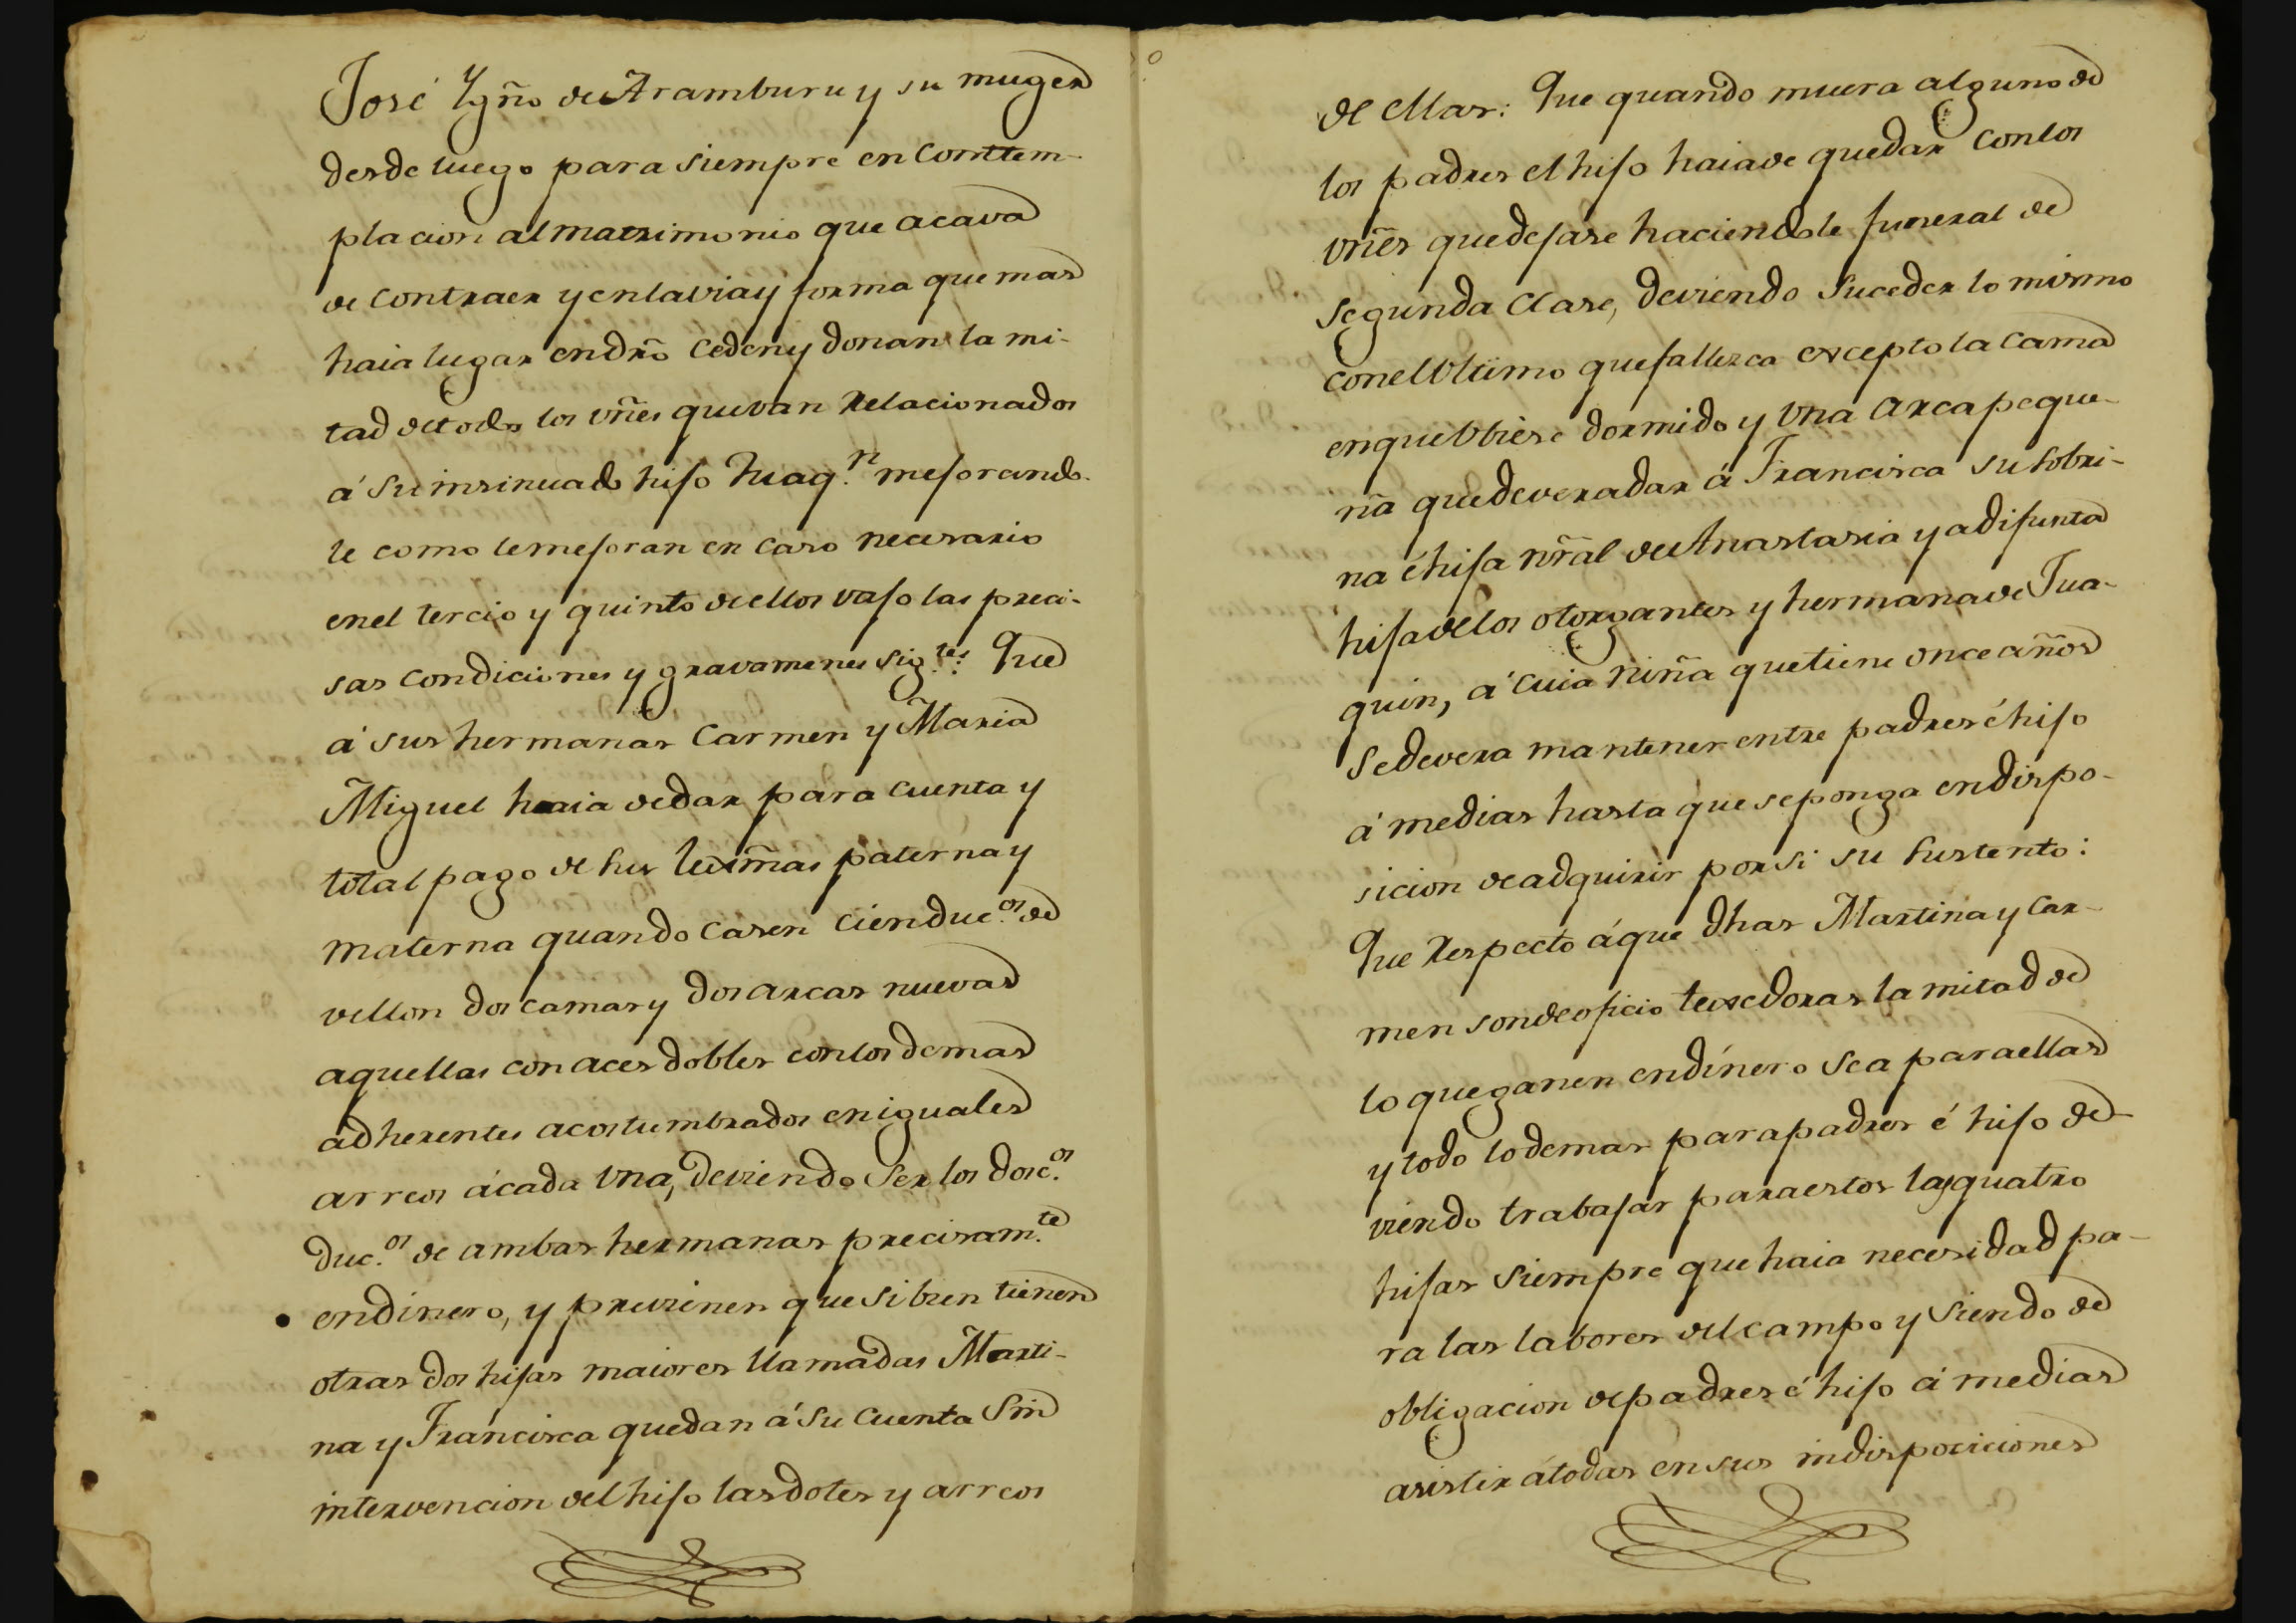 José Ygño de Aramburu y su muger
desde luego para siempre en conttem-
placion al matrimonio que acava
de contraer y en la via y forma que mas
haia lugar en dro ceden y donan la mi-
tad de todos los vñes que van relacionados
á su insinuado hijo Juaqn mejorando-
le como le mejoran en caso necesario
en el tercio y quinto de ellos vajo las preci-
sas condiciones y gravamenes sigtes: Que
á sus hermanas Carmen y Maria
Miguel haia de dar para cuenta y
total pago de sus lexmas paterna y
materna quando casen cien ducos de
vellon dos camas y dos arcas nuevas
aquellas con aces dobles con los demas
adherentes acostumbrados en iguales
arreos á cada una, deviendo ser los dosc.os
duc.os de ambas hermanas precisam.te
en dinero, y previenen que si bien tienen
otras dos hijas maiores llamadas Marti-
na y Francisca quedan á su cuenta sin
intervencion del hijo las dotes y arreos
de ellas: Que quando muera alguno de
los padres el hijo haia de quedar con los
vñes que dejase haciendole funeral de
segunda clase, deviendo suceder lo mismo
con el vltimo que fallezca excepto la cama
en que vbiese dormido y una arca peque-
ña que devera dar á Francisca su sobri-
na é hija nral de Anastasia ya difunta
hija de los otorgantes y hermana de Jua-
quin, á cuia niña que tiene once años
se devera mantener entre padres é hijo
á medias hasta que se ponga en dispo-
sicion de adquirir por si su sustento:
Que respecto á que dhas Martina y Car-
men son de oficio texedoras la mitad de
lo que ganen en dinero sea para ellas
y todo lo demas para padres é hijo de-
viendo trabajar para estos las quatro
hijas siempre que haia necesidad pa-
ra las labores del campo y siendo de
obligacion de padres é hijo á medias
asistir á todas en sus indisposiciones